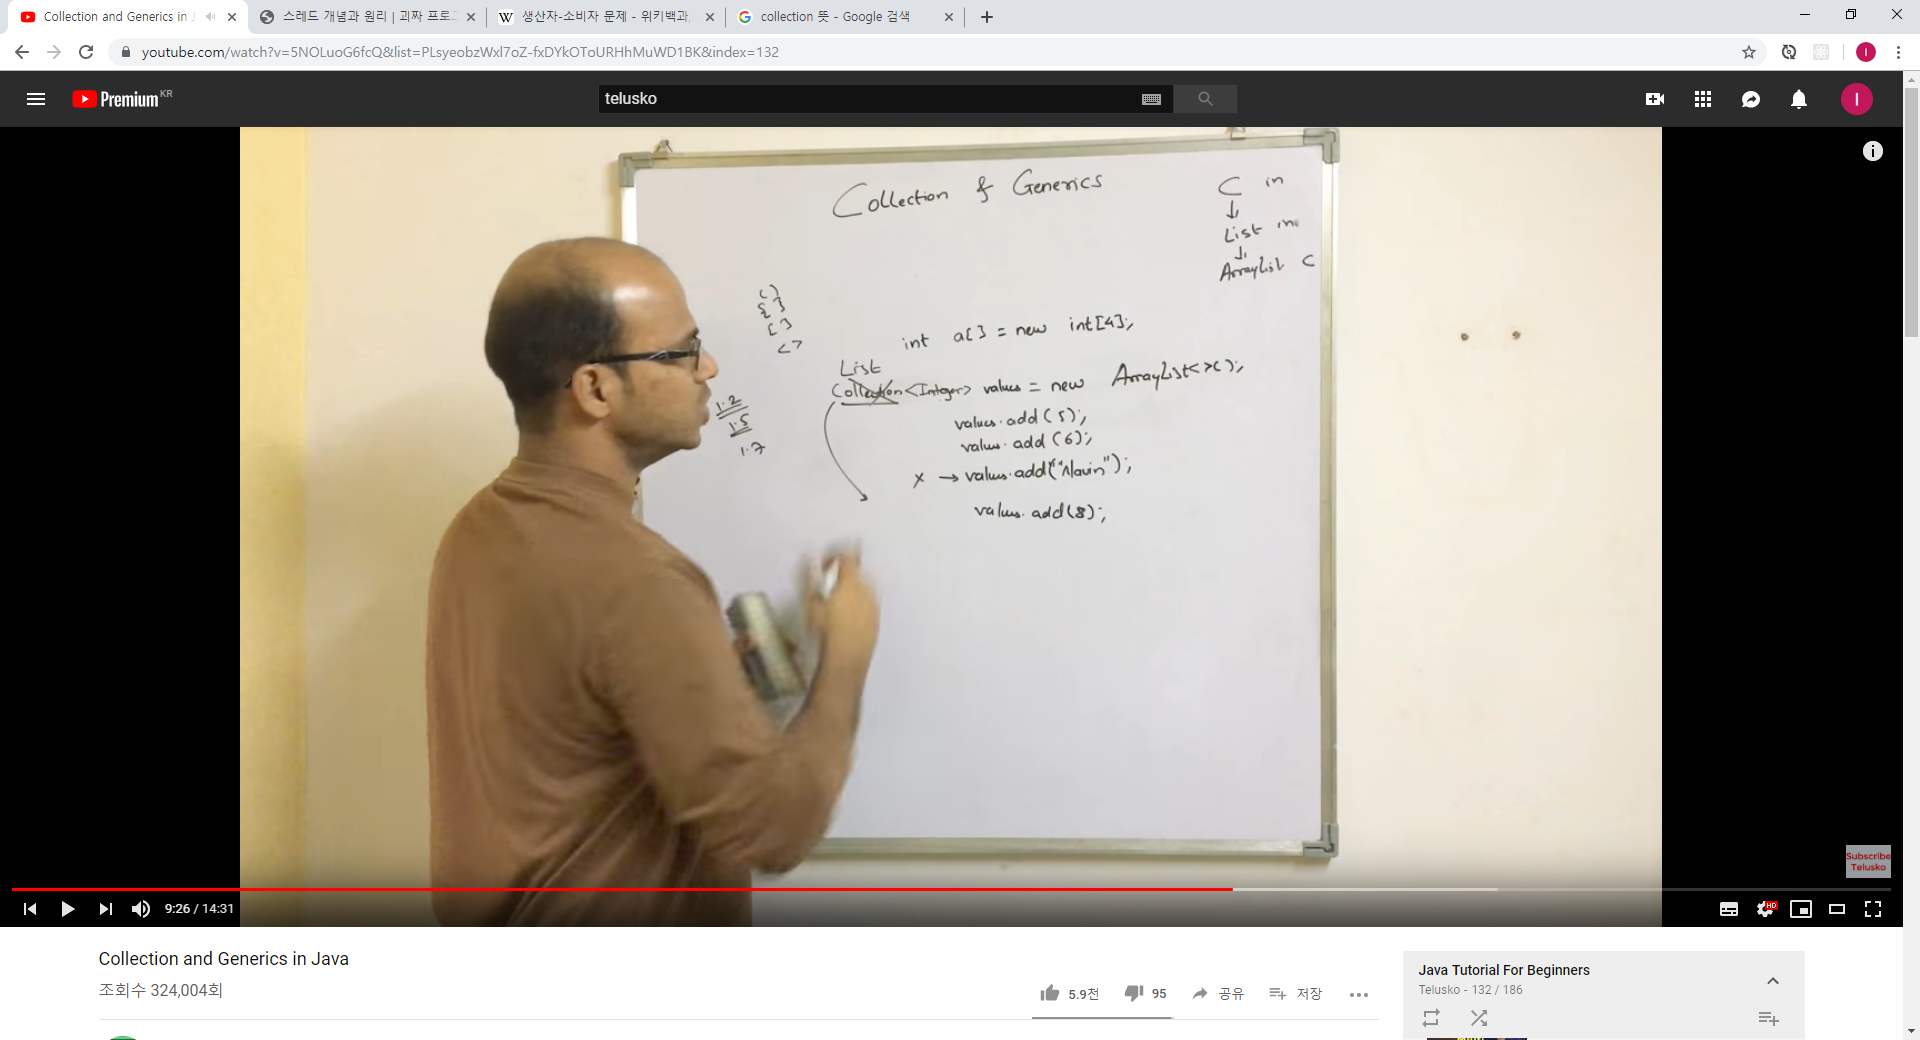 Collection and Generics in J
스레드 개념과 원리 | 괴짜 프로그
생산자-소비자 문제 - 위키백과,
collection 뜻 - Google 검색
youtube.com/watch?v=5NOLuoG6fcQ&list=PLsyeobzWxl7oZ-fxDYkOToURHhMuWD1BK&index=132
I
Premium KR
telusko
I
Collection & Generics
C in
List in
ArrayList C
( )
{ }
[ ]
< >
int a[] = new int[4];
List
Collection <Integer> values = new ArrayList<>();
1.2
1.5
1.7
values.add(5);
values.add(6);
x → values.add("Navin");
values.add(8);
Subscribe
Telusko
9:26 / 14:31
HD
Collection and Generics in Java
조회수 324,004회
5.9천
95
공유
저장
Java Tutorial For Beginners
Telusko - 132 / 186